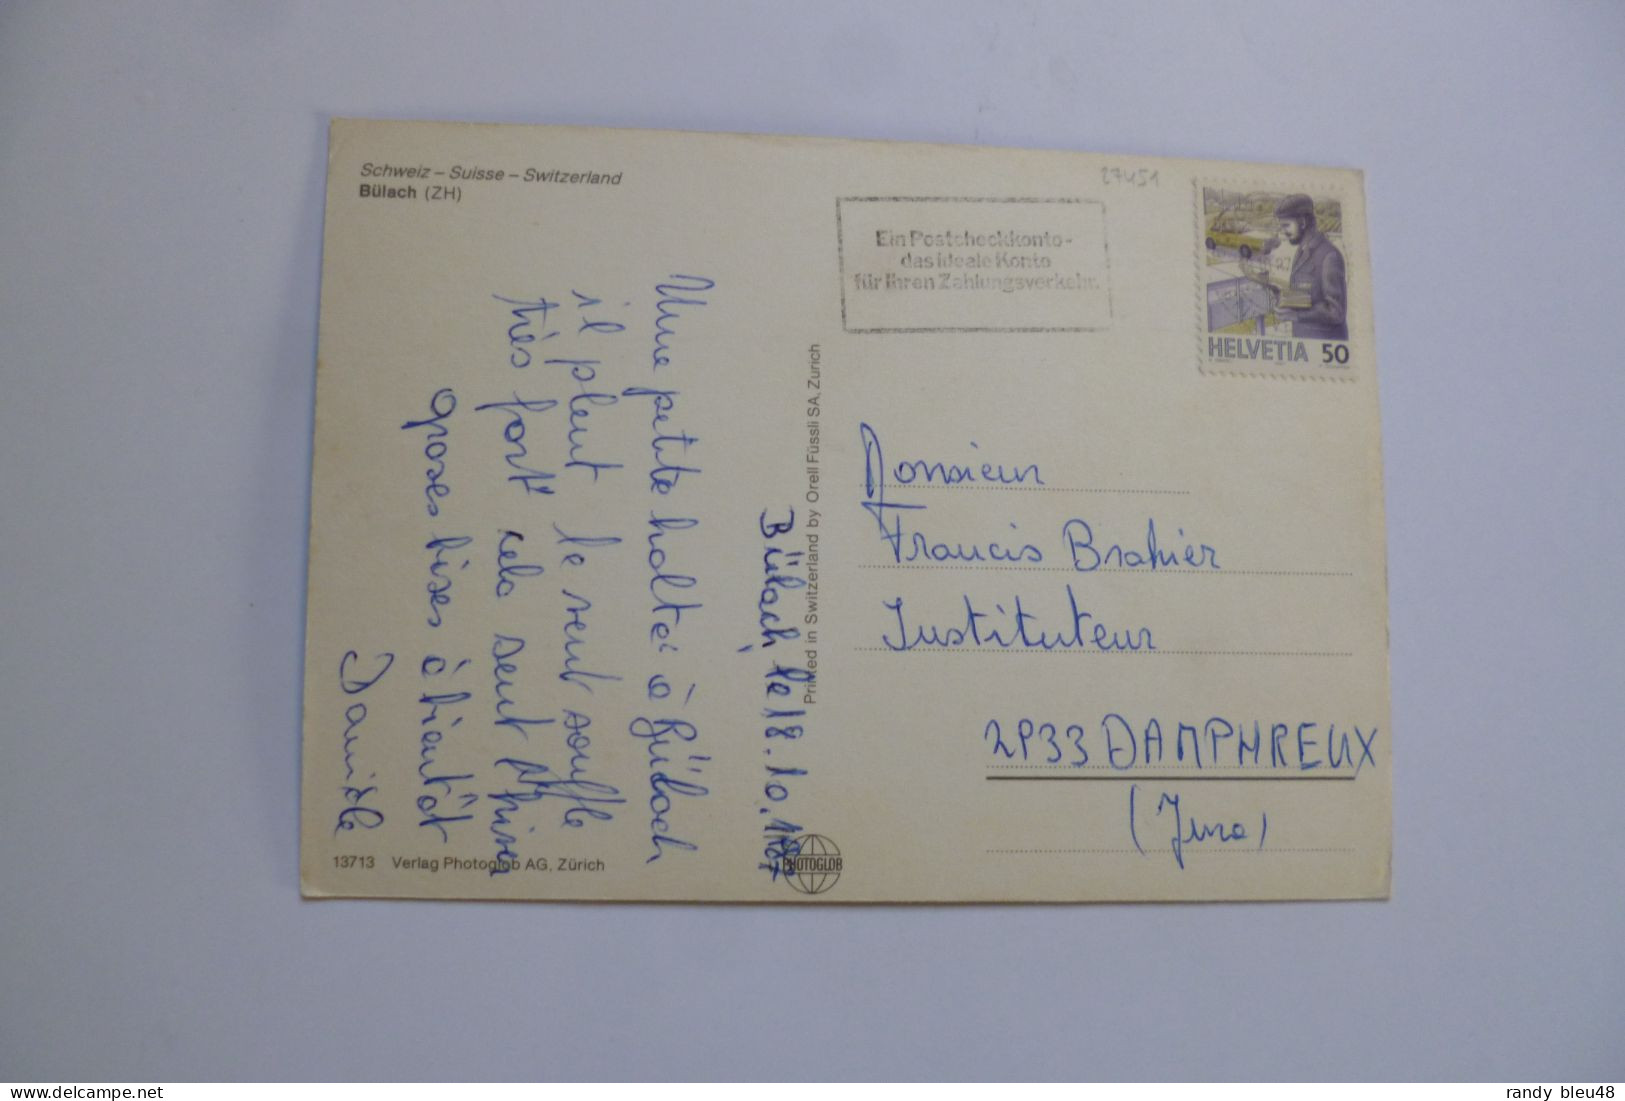 Schweiz – Suisse – Switzerland
Bülach (ZH)
27451
Ein Postcheckkonto-
das ideale Konto
für Ihren Zahlungsverkehr.
HELVETIA 50
Bülach, le 18.10.1987
Une petite halte à Bülach
il pleut le vent souffle
très fort cela sent l'hiver
Grosses bises à bientôt
Danièle
Printed in Switzerland by Orell Füssli SA, Zurich
Monsieur
Francis Brahier
Instituteur
2933 DAMPHREUX
(Jura)
13713 Verlag Photoglob AG, Zürich
PHOTOGLOB
randy bleu48